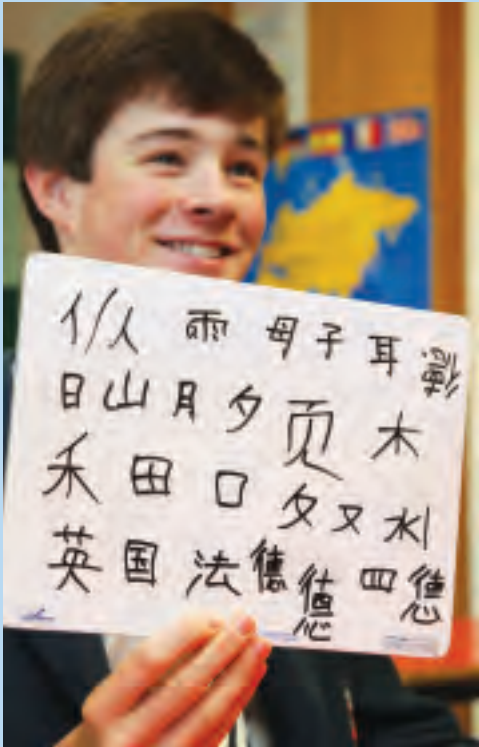 亻/人 雨 母 子 耳
日 山 月 夕 页 木
禾 田 口 夕 又 水
英 国 法 德 德 四 德